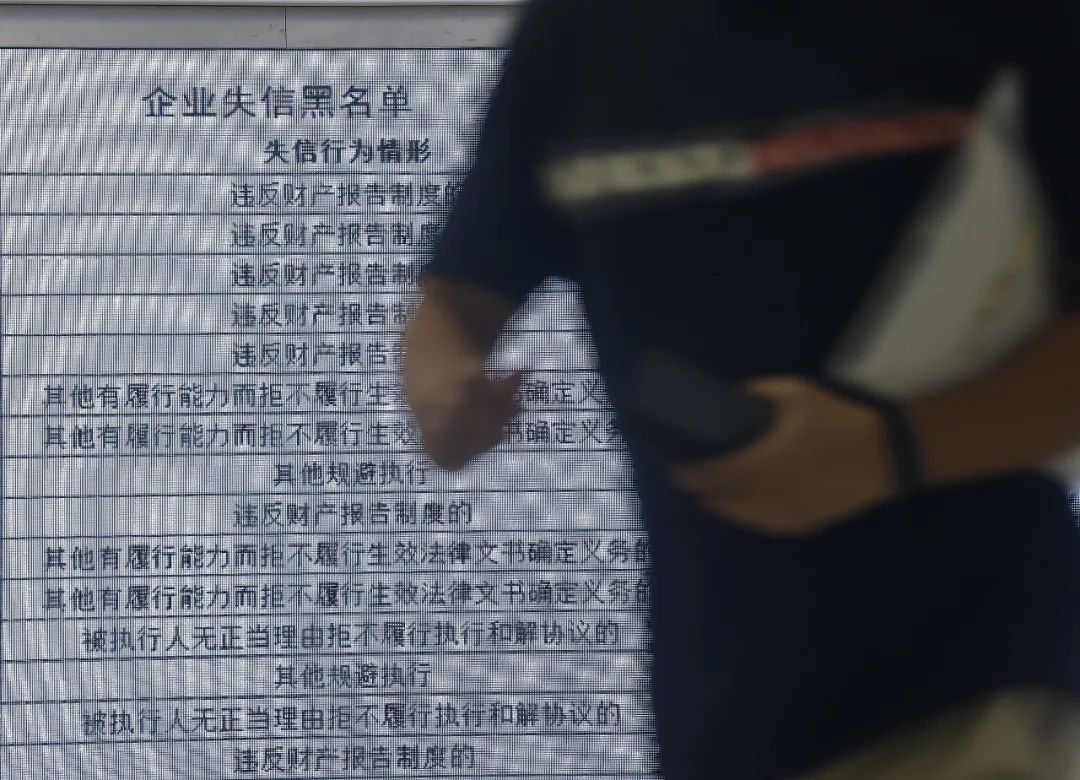 企业失信黑名单
失信行为情形
违反财产报告制度的
违反财产报告制度
违反财产报告制
违反财产报告制
违反财产报告
其他有履行能力而拒不履行生 确定义
其他有履行能力而拒不履行生效 书确定义务
其他规避执行
违反财产报告制度的
其他有履行能力而拒不履行生效法律文书确定义务的
其他有履行能力而拒不履行生效法律文书确定义务的
被执行人无正当理由拒不履行执行和解协议的
其他规避执行
被执行人无正当理由拒不履行执行和解协议的
违反财产报告制度的